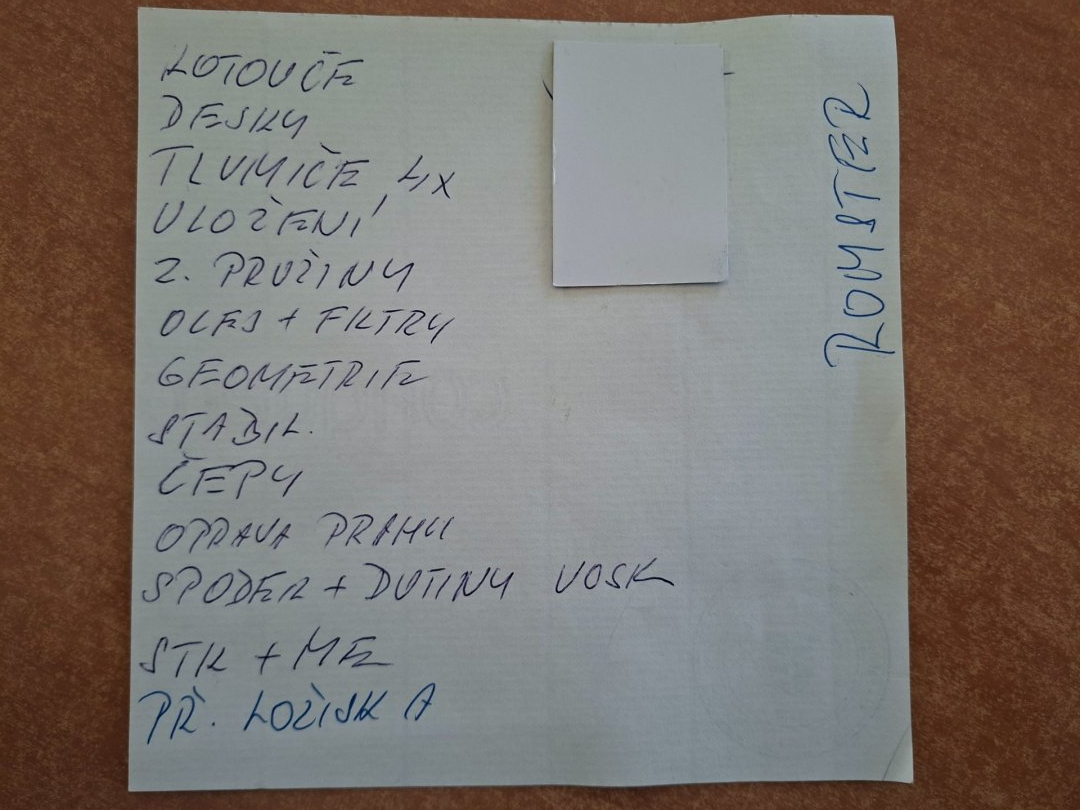 KOTOUČE
DESKY
TLUMIČE 4x
ULOŽENÍ
Z. PRUŽINY
OLEJ + FILTRY
GEOMETRIE
STABIL.
ČEPY
OPRAVA PRAHU
SPODEK + DUTINY VOSK
STK + ME
PŘ. LOŽISKA
ROOMSTER